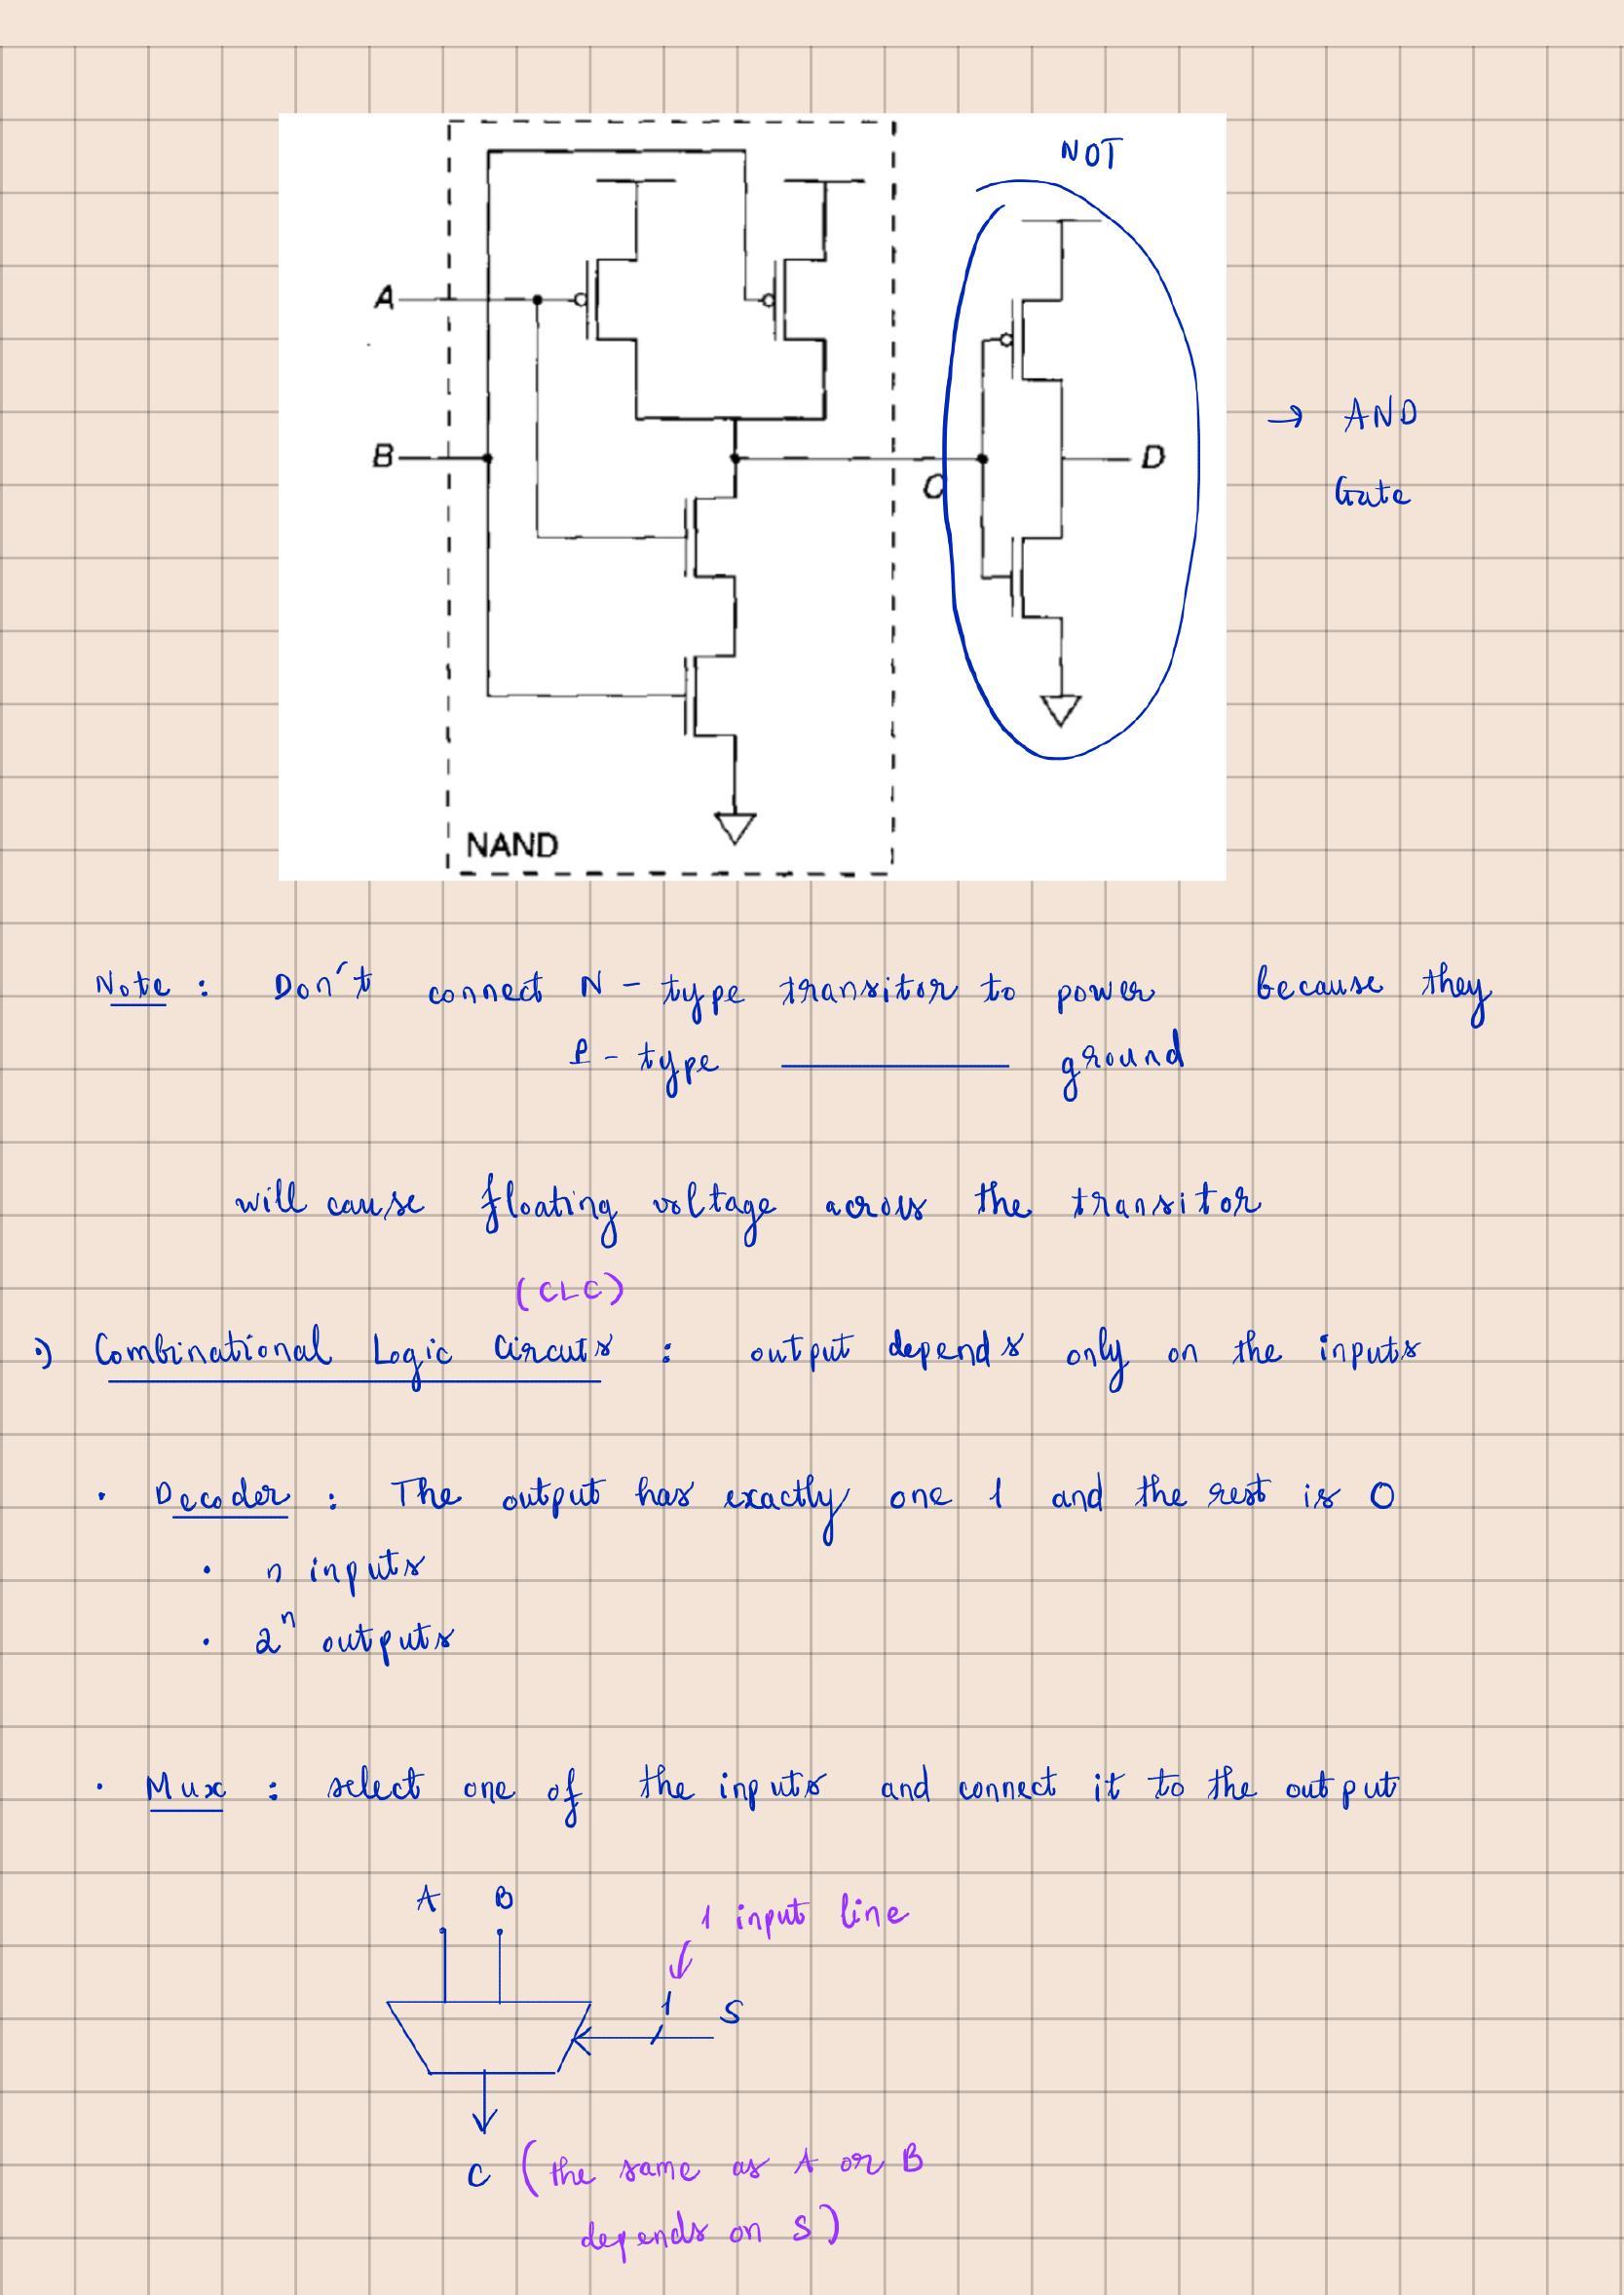 NOT
A
B
C
D
→ AND
Gate
NAND
Note : Don't connect N - type transitor to power because they
P - type ———— ground
will cause floating voltage across the transitor
(CLC)
:) Combinational Logic Circuts : output depends only on the inputs
· Decoder : The output has exactly one 1 and the rest is 0
· n inputs
· 2ⁿ outputs
· Mux : select one of the inputs and connect it to the output
A B
1 input line
1 S
C (the same as A or B
depends on S)